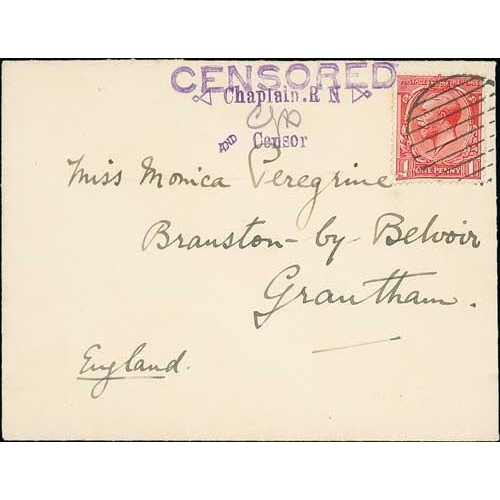 CENSORED
Chaplain. R N
AND Censor
Miss Monica Peregrine
Branston-by Belvoir
Grantham.
England.
1 ONE PENNY 1